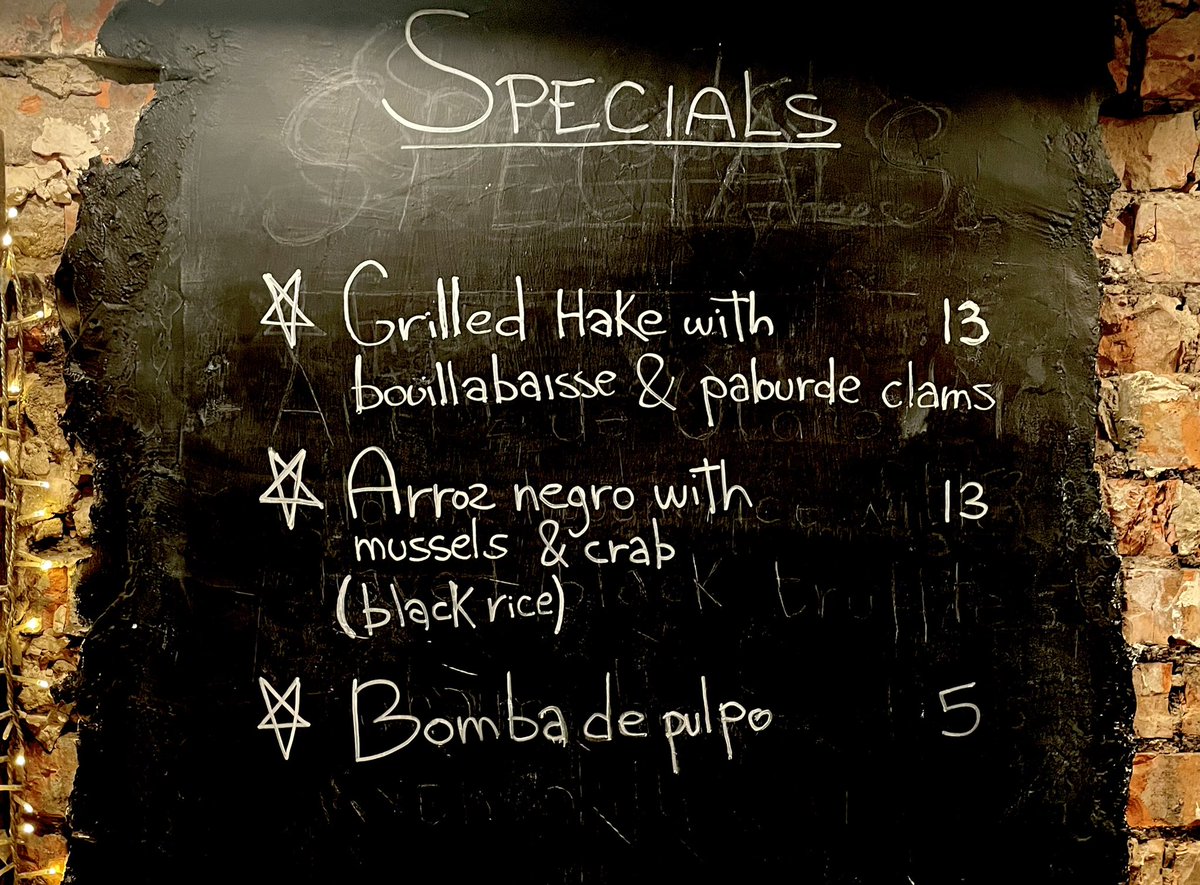 SPECIALS
Grilled Hake with 13
bouillabaisse & palourde clams
Arroz negro with 13
mussels & crab
(black rice)
Bomba de pulpo 5